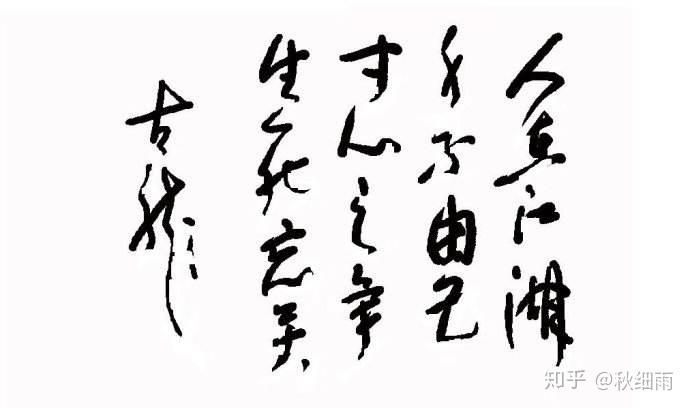 人在江湖
身不由己
寸心之争
生死忘
古龙
知乎 @秋细雨